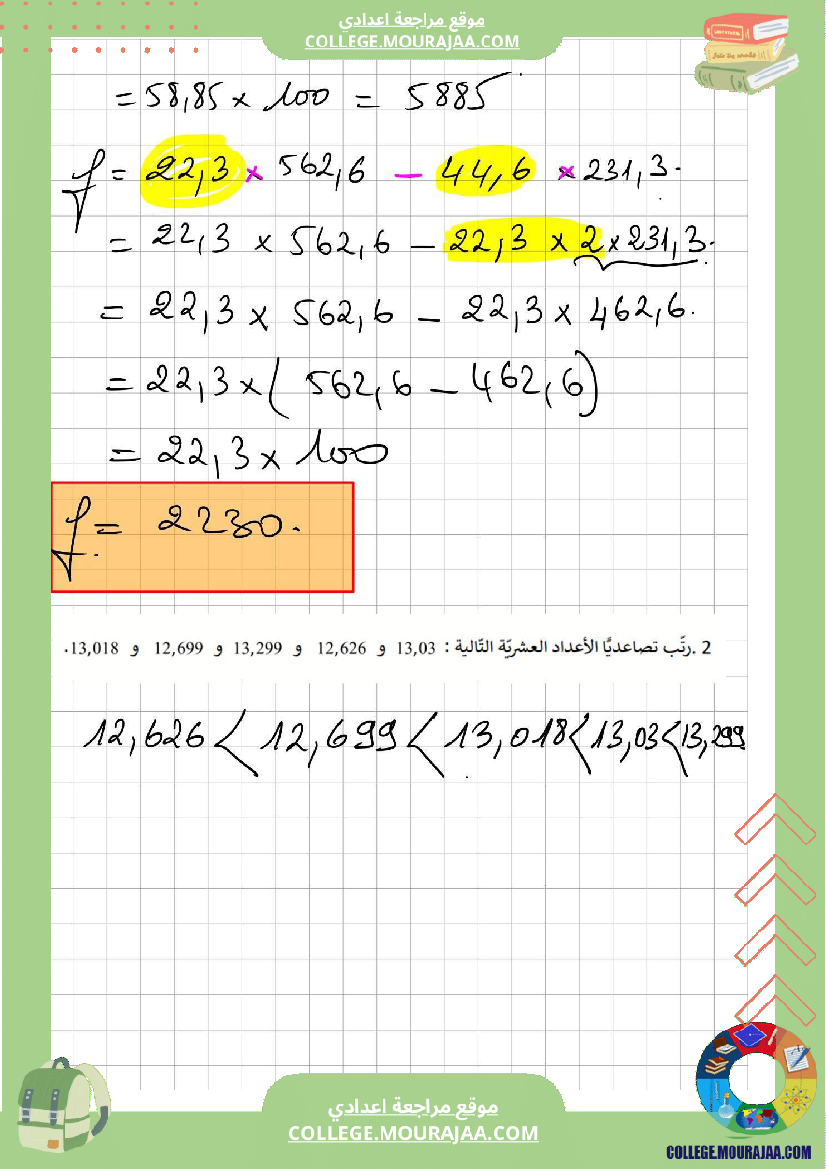 موقع مراجعة اعدادي
COLLEGE.MOURAJAA.COM
= 58,85 × 100 = 5885
f = 22,3 × 562,6 – 44,6 × 231,3.
= 22,3 × 562,6 – 22,3 × 2 × 231,3.
= 22,3 × 562,6 – 22,3 × 462,6.
= 22,3 × ( 562,6 – 462,6 )
= 22,3 × 100
f = 2230.
2 .رتّب تصاعديًّا الأعداد العشريّة التّالية : 13,03 و 12,626 و 13,299 و 12,699 و 13,018.
12,626 < 12,699 < 13,018 < 13,03 < 13,299
موقع مراجعة اعدادي
COLLEGE.MOURAJAA.COM
COLLEGE.MOURAJAA.COM